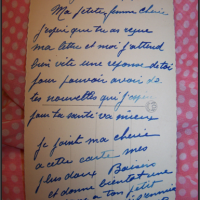 Ma petite femme cherie
j'espere que tu as reçue
ma lettre et moi j'attend
bien vite une reponse de toi
pour pouvoir avoir de
tes nouvelles que j'espere
que ta santé va mieux
je joint ma cherie
a cette carte mes
plus doux Baisers
et donne bientot une
a ton petit